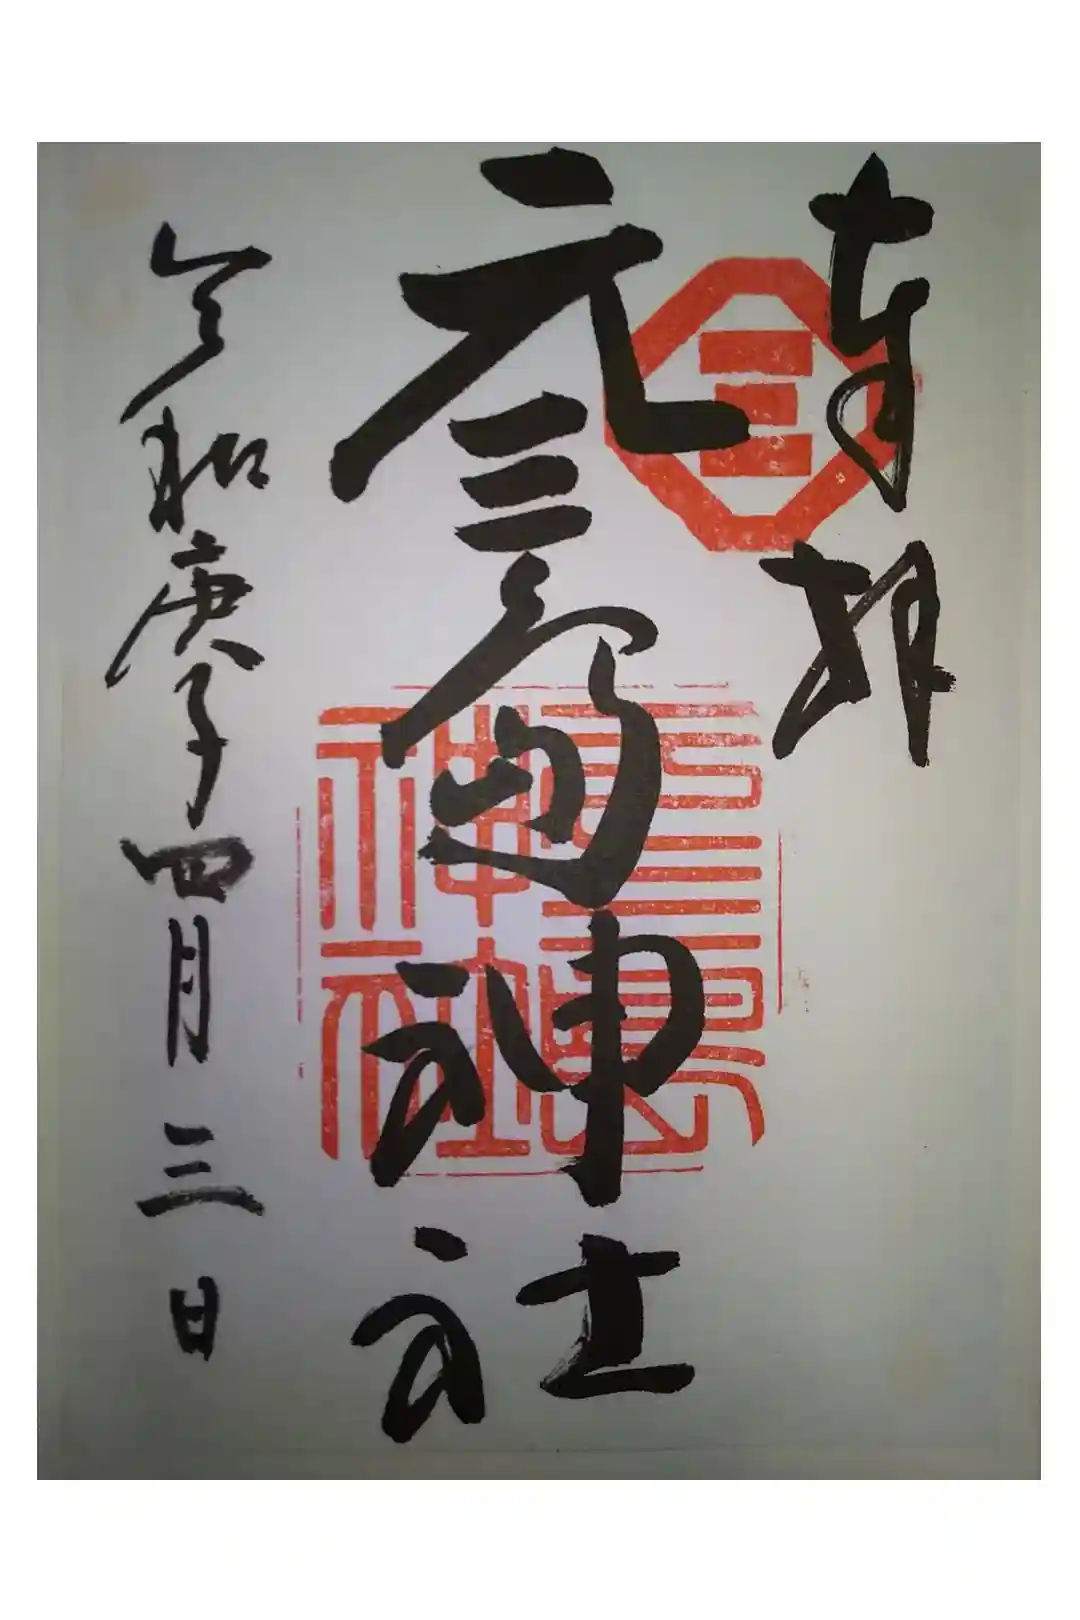 奉拝
三
元三島神社
元三島
神社
令和庚子四月三日